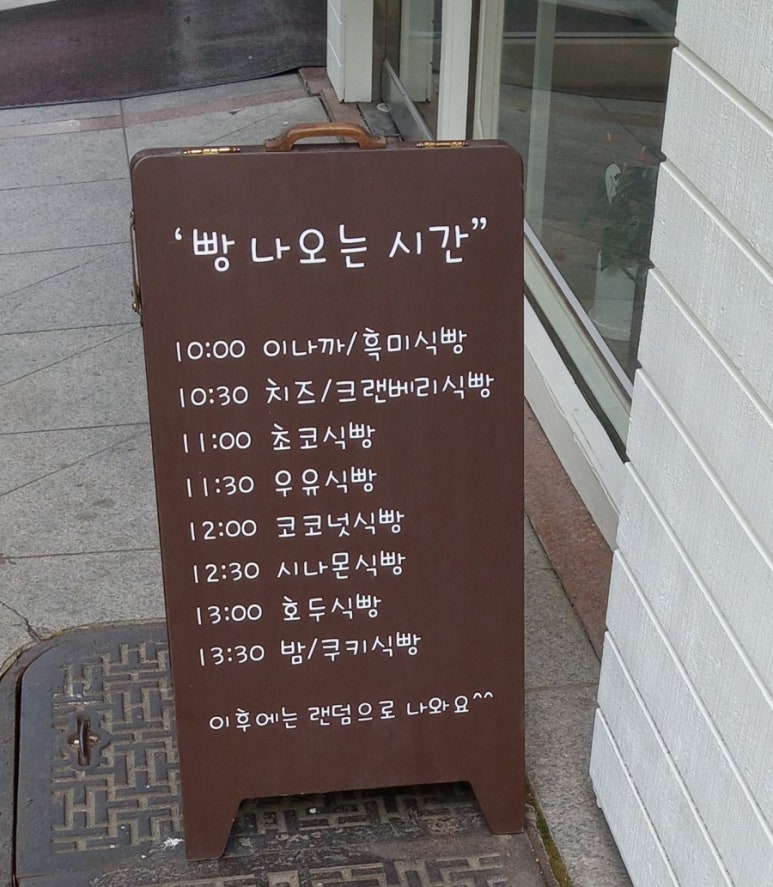 ‘빵 나오는 시간”
10:00 이나까/흑미식빵
10:30 치즈/크랜베리식빵
11:00 초코식빵
11:30 우유식빵
12:00 코코넛식빵
12:30 시나몬식빵
13:00 호두식빵
13:30 밤/쿠키식빵
이후에는 랜덤으로 나와요^^